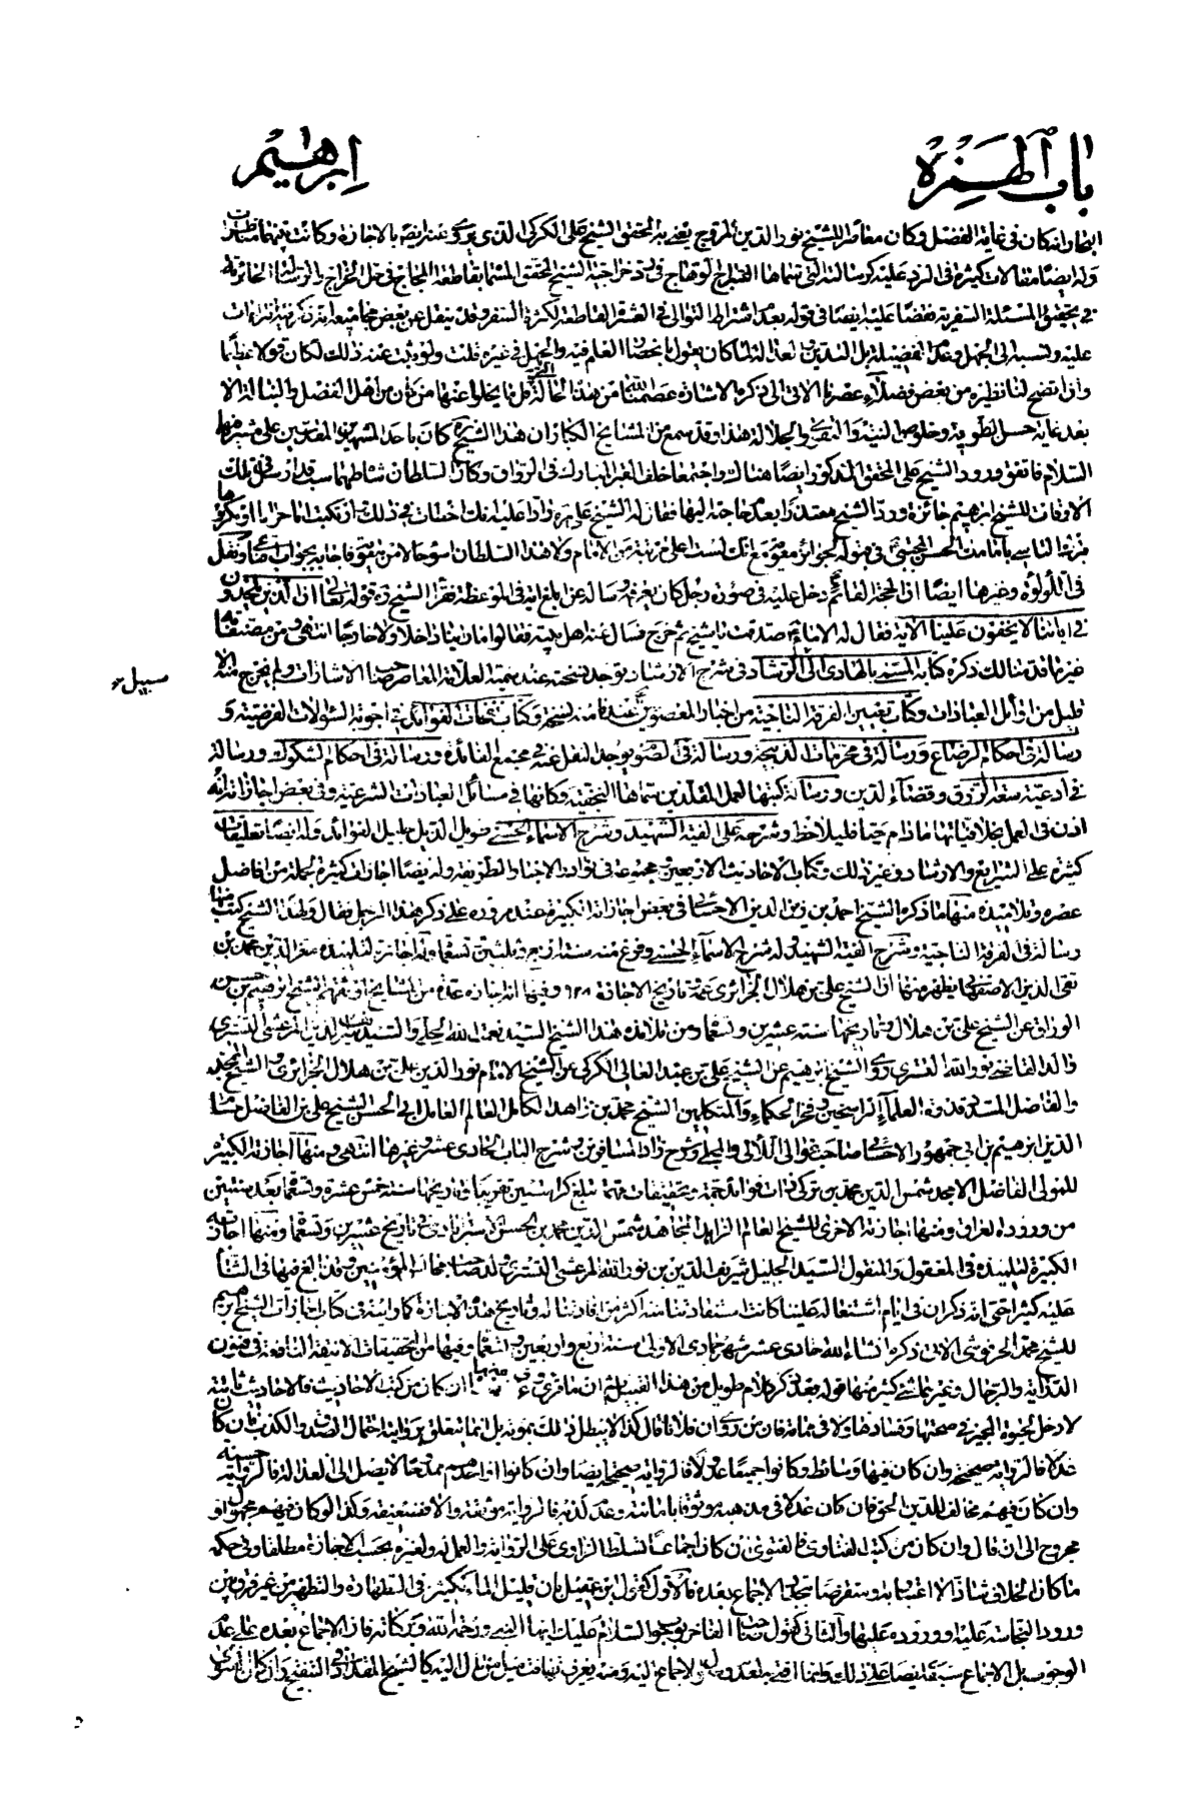 باب الهمزه
ابرهيم
البحار انه كان فى غاية الفضل وكان معاصرا للشيخ نور الدين المروج يعنى به المحقق الشيخ على الكركى الذى يروى عنه ايضا بالاجازة وكانت بينهما مناظرات
وله ايضا مقالات كثيرة فى الرد عليه كرسالته التى سماها السراج الوهاج فى رد خراجية الشيخ المحقق المسماة بقاطعة اللجاج فى حل الخراج والرسالة الحائرية
فى تحقيق المسئلة السفرية نقضا عليه ايضا فى قوله بعد اشتراط التوالى فى العشرة القاطعة لكثرة السفر وقد ينقل عن بعض مجاميعه انه ذكر فيه
عليه ونسبة الى الجهل وعدم الفضيلة بل التدين لعدالته لما كان يقول بانحصار العلم فيه والجهل فى غيره قلت ولو ثبت عنه ذلك لكان قولا عظيما
واذا تضح لنا نظيره من بعض فضلاء عصرنا الاتى الى ذكره الاشارة عصمنا الله من هذه الحالة قل ما يخلوا عنها من كان من اهل الفضل والنبالة الا
بعد غاية حسن الطوية وخلوص النية والتقوى والجلالة هذا وقد سمع من المشايخ الكبار ان هذا الشيخ كان باحد المشهدين المقدسين على مشرفهما
السلام فاتفق ورود الشيخ على المحقق المذكور ايضا هناك واجتمعا خلف القبر المبارك فى الرواق وكان السلطان شاه طهماسب قد ارسل فى تلك
الاوقات للشيخ ابرهيم جائزة ورد الشيخ معتذرا بعدم حاجته اليها فقال له الشيخ على رادا عليه انك اخطأت فى ذلك و ارتكبت اما حراما او مكروها
بترك التاسى بامامنا الحسن المجتبى فى قبوله لجوائز معوية مع انك لست اعلى مرتبة من الامام ولا هذا السلطان اسوء حالا من معوية فاجابه بجواب ونقل
فى اللؤلؤة وغيرها ايضا ان الحجة القائم دخل عليه فى صورة رجل كان يعرفه وسأله عن ابلغ اية فى الموعظة فقرأ الشيخ ره قوله تعالى ان الذين يلحدون
فى اياتنا لا يخفون علينا الاية فقال له الامام صدقت يا شيخ ثم خرج فسأل عنه اهل بيته فقالوا ما راينا داخلا ولا خارجا انتهى ومن مصنفاته
غير ما قدمنا لك ذكره كتابه المسمى بالهادى الى الرشاد فى شرح الارشاد يوجد نسخته عند سمية العلامة المعاصر صاحب الاشارات ولم يخرج منه الا
قليل من اوائل العبادات وكتاب تعيين الفرقة الناجية من اخبار المعصومين عندنا منه نسخة وكتاب نفحات الفوائد فى اجوبة السؤالات الفرضية و
سبيل
رسالة فى احكام الرضاع ورسالة فى محرمات الذبيحة ورسالة فى الصوم يوجد النقل عنه فى مجمع الفائدة ورسالة فى احكام الشكوك ورسالة
فى ادعية سعة الرزق وقضاء الدين ورسالة كتبها لعمل المقلدين سماها النجفية وكانها فى مسائل العبادات الشرعية وفى بعض اجازاته انه
اذن فى العمل بخلافياتها مادام حيا فليلاحظ وشرحه على الفية الشهيد وشرح الاسماء الحسنى طويل الذيل جليل الفوائد وله ايضا تعليقات
كثيرة على الشرايع والارشاد وغير ذلك وكتاب الاحاديث الاربعين ومجموعة فى نوادر الاخبار الطريفة وله ايضا اجازات كثيرة لجملة من افاضل
عصره وتلامذه منها ما ذكره الشيخ احمد بن زين الدين الاحسائى فى بعض اجازاته الكبيرة عند مروره على ذكر هذا الرجل فقال ولهذا الشيخ كتب منها
رسالة فى الفرقة الناجية وشرح الفية الشهيد وله شرح الاسماء الحسنى وفرغ منه سنة اربع وثلثين وتسعمائة وله اجازة لتلميذه معز الدين محمد بن
تقى الدين الاصفهانى يظهر منها ان الشيخ على بن هلال الجزائرى عمه تاريخ الاجازة ٩٢٨ وفيها انه اجازه عدة من المشايخ اوثقهم الشيخ ابرهيم بن حسن
الوراق عن الشيخ على بن هلال وتاريخها سنة عشرين وتسعمائة ومن تلامذة هذا الشيخ السيد نعمة الله الحلى والسيد شريف الدين المرعشى التسترى
والد القاضى نور الله التسترى روى الشيخ ابرهيم عن الشيخ على بن عبد العالى الكركى عن الشيخ الامام نور الدين على بن هلال الجزائرى والشيخ المجتهد
والفاضل المسدد قدوة العلماء الراسخين وفخر الحكماء والمتكلمين الشيخ محمد بن زاهد الكامل العالم العامل ابى الحسن الشيخ على بن الفاضل حسام
الدين ابرهيم بن ابى جمهور الاحسائى صاحب غوالى اللئالى والمجلى وشرح زاد المسافرين وشرح الباب الحادى عشر وغيرها انتهى ومنها اجازته الكبيرة
للمولى الفاضل الامجد شمس الدين محمد بن تركى ذات فوائد جمة وتحقيقات مهمة تبلغ كراستين تقريبا وتاريخها سنة خمس عشرة وتسعمائة بعد سنتين
من وروده العراق ومنها اجازته الاخرى للشيخ العالم الزاهد المجاهد شمس الدين محمد بن الحسن الاسترابادى فى تاريخ عشرين وتسعمائة ومنها اجازته
الكبيرة لتلميذه فى المعقول والمنقول السيد الجليل شريف الدين بن نور الله المرعشى التسترى والد صاحب مجالس المؤمنين وقد بالغ فيها فى الثناء
عليه كثيرا حتى انه ذكر ان فى ايام اشتغاله علينا كانت استفادتنا منه اكثر من افادتنا له وتاريخ هذه الاجازة كما رايته فى كتاب اجازات الشيخ ابرهيم
للشيخ محمد الحرفوشى الاتى ذكره انشاء الله حادى عشر شهر جمادى الاولى سنة اربع واربعين وتسعمائة وفيها من التحقيقات الانيقة النافعة فى فنون
الدراية والرجال وغيرهما شئ كثير منها قوله بعد ذكر كلام طويل من هذا القبيل ثم ان ما قرئ ان كان من كتب الاحاديث فالاحاديث ثابتة
لا دخل لحيوة المجيز فى صحتها وفسادها ولا فى مماته فان من روى ان فلانا قال كذا لا يبطل ذلك بموته بل انما يتعلق بروايته احتمال الصدق والكذب فان كان
عدلا فالرواية صحيحة وان كان فيها وسائط وكانوا جميعا عدولا فالرواية صحيحة ايضا وان كانوا او احدهم ممدحا لا يصل الى العدالة فالرواية حسنة
وان كان فيهم مخالف للدين الحق فان كان عدلا فى مذهبه موثوقا بامانته وعدالته فالرواية موثقة والا فضعيفة وكذا لو كان فيهم مجهول او
مجروح الى ان قال وان كان من كتب الفتاوى فالفتوى ان كان اجماعيا تسلط الراوى على الرواية والعمل له ولغيره بحسب الاجازة مطلقا وفى حكمه
ما كان الخلاف شاذا لا اعتبار به وسفر ضا تحالى الاجماع بعده فالاول كقول ابن عقيل بان قليل الماء ككثير فى الطهارة والتطهر من غير فرق بين
ورود النجاسة عليه ووروده عليها والثانى كقول صاحب الفاخر بوجوب السلام عليك ايها النبى ورحمة الله وبركاته فان الاجماع بعده على عدم
الوجوب بل الاجماع سبقه ايضا على ذلك وانما افتى به لعدم وصول الاجماع اليه ومنه يعرف تهافت ميل من مال اليه كالشيخ المقداد فى التنقيح وان كان فتوى